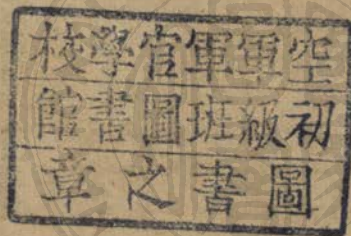 空軍軍官學校
初級班圖書館
圖書之章